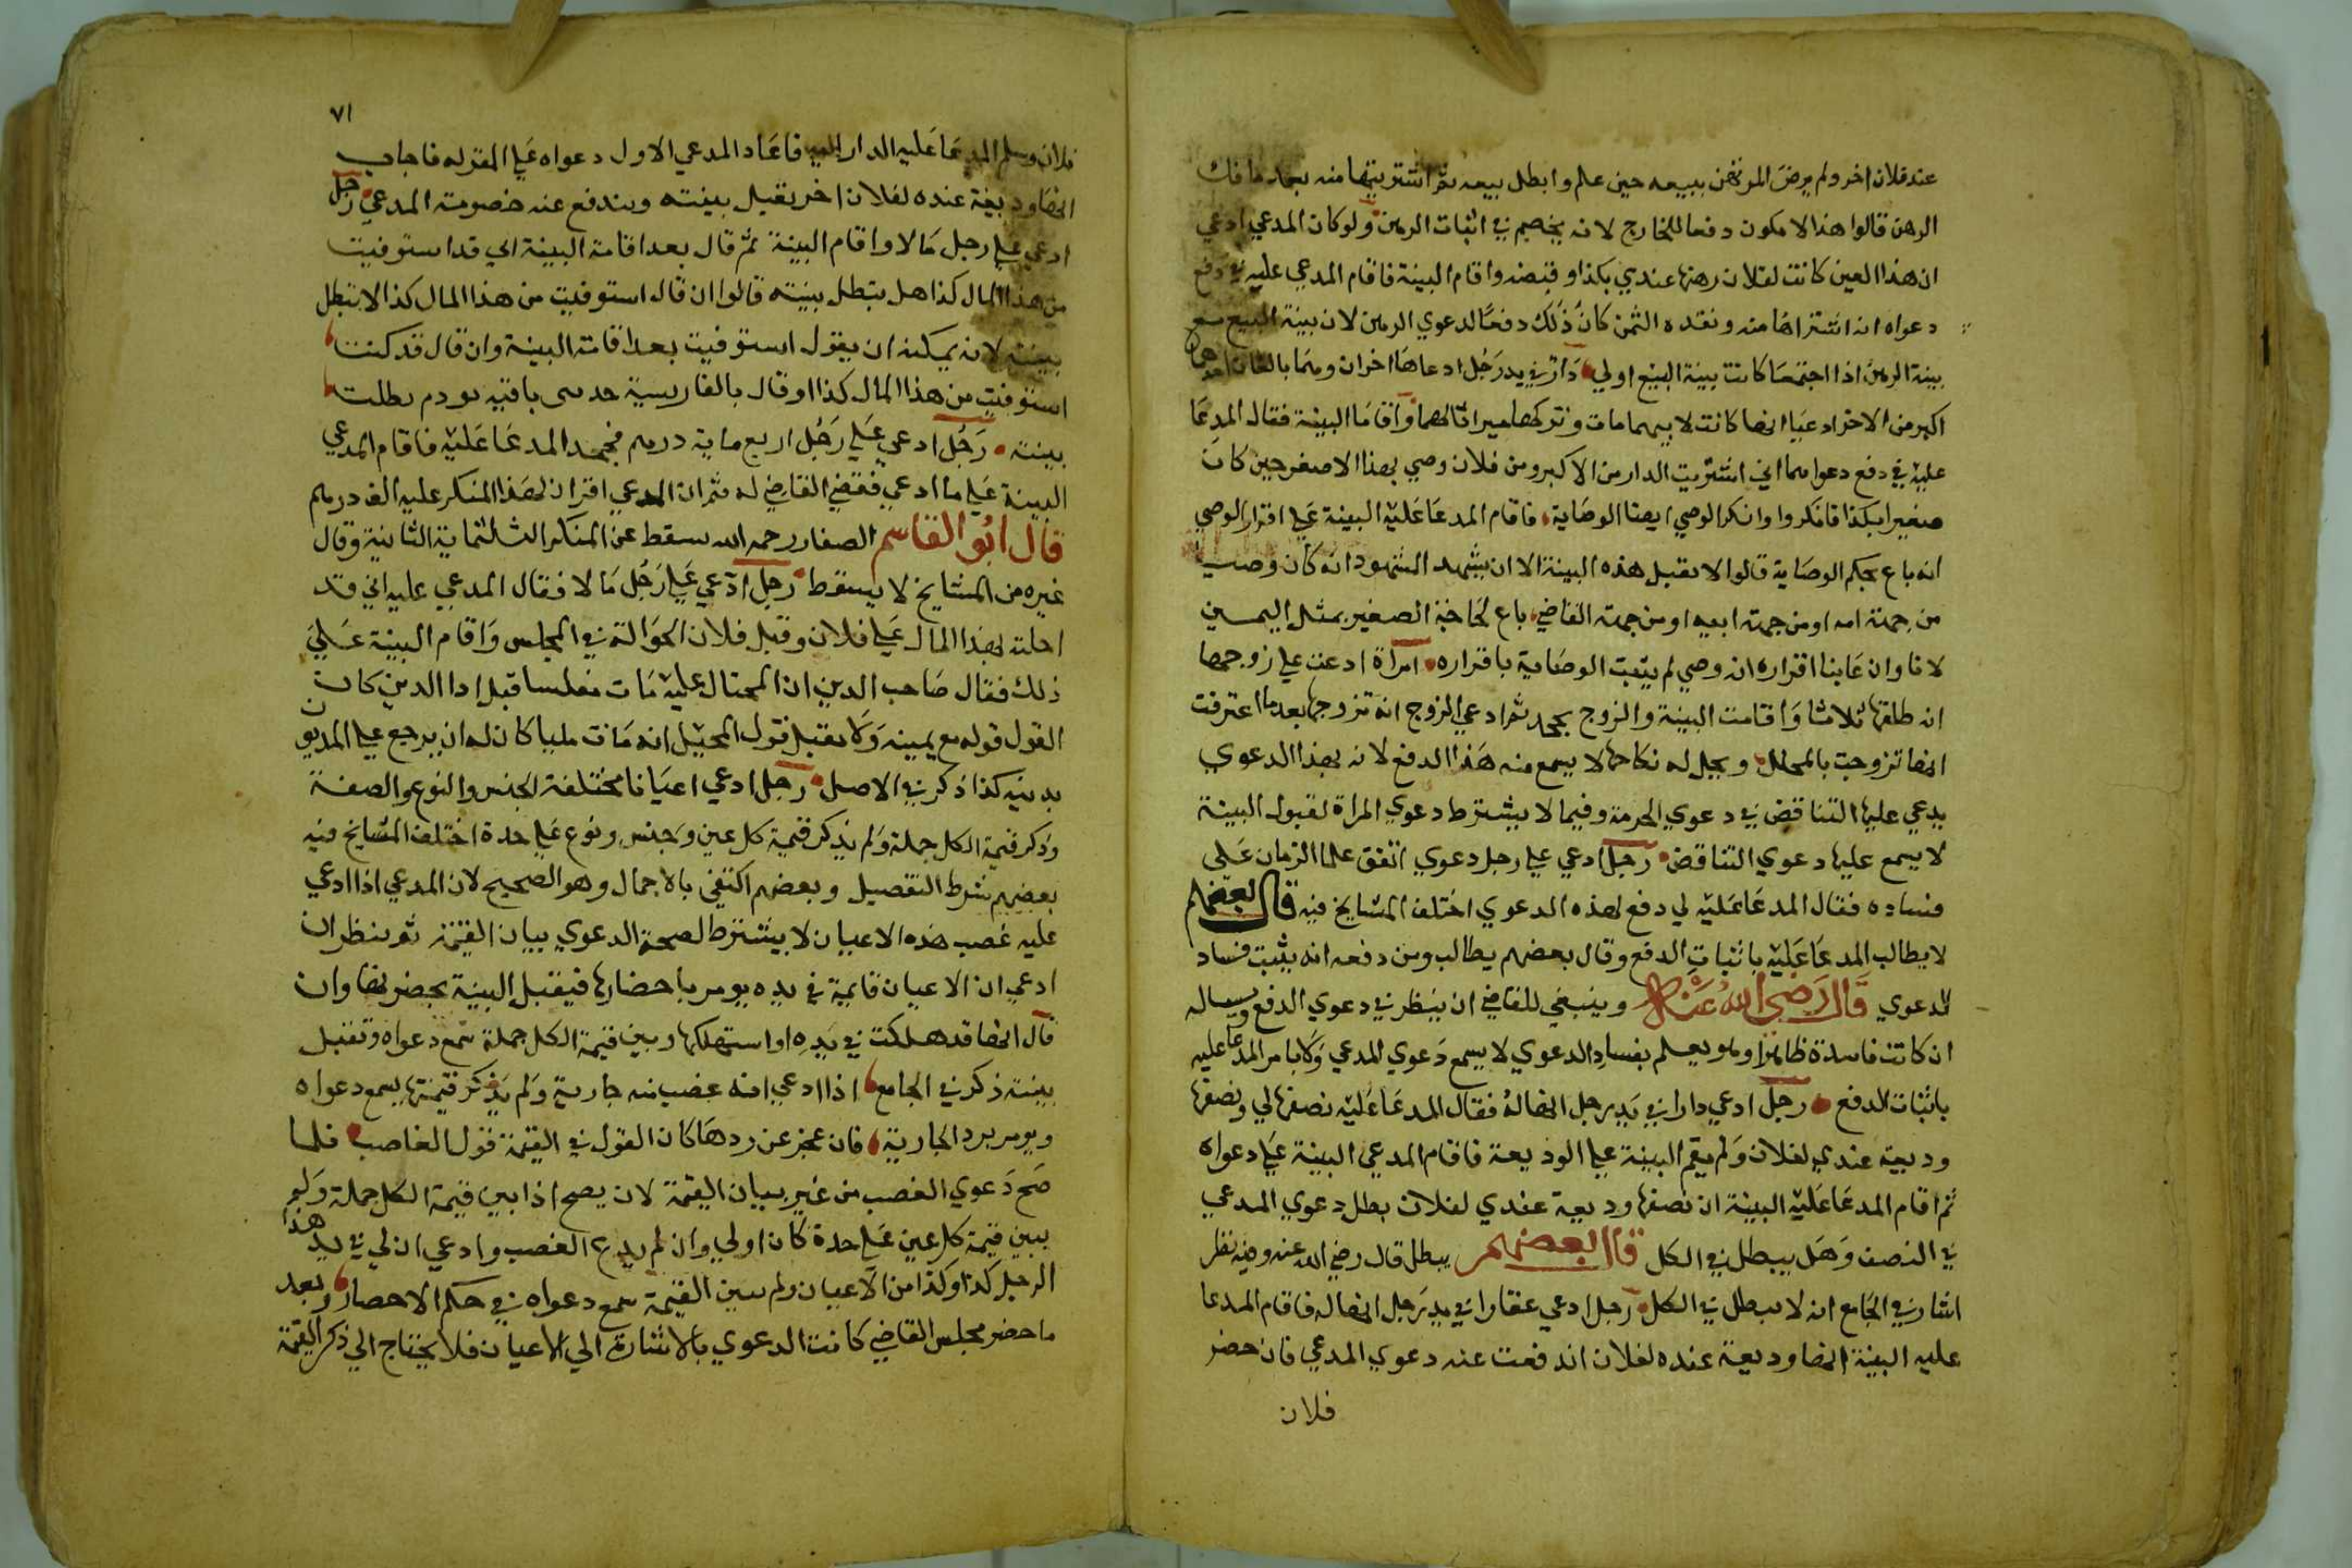 عند فلان اخر ولم يرض المرتهن ببيعه حين علم وابطل بيعه ثم اشتريتها منه بعد ما فك
الرهن قالوا هذا لا يكون دفعا للخارج لانه يخصم في اثبات الرهن ولو كان المدعي ادعي
ان هذا العين كانت لفلان رهنها عندي بكذا وقبضه واقام البينة فاقام المدعي عليه في دفع
دعواه انه اشتراها منه ونقده الثمن كان ذلك دفعا لدعوي الرهن لان بينة البيع مع
بينة الرهن اذا اجتمعتا كانت بينة البيع اولي دار في يد رجل ادعاها اخوان وهما بالغان احدهما
اكبر من الاخر ادعيا انها كانت لابيهما مات وتركها ميراثا لهما واقاما البينة فقال المدعا
عليه في دفع دعواهما اني اشتريت الدار من الاكبر ومن فلان وصي هذا الاصغر حين كان
صغيرا بكذا فانكروا وانكر الوصي ايضا الوصاية فاقام المدعا عليه البينة علي اقرار الوصي
انه باع بحكم الوصاية قالوا لا يقبل هذه البينة الا ان يشهد الشهود انه كان وصيا
من جهة امه او من جهة ابيه او من جهة القاضي باع لحاجة الصغير بمثل اليمين
لانا وان عاينا اقراره انه وصي لم يثبت الوصاية باقراره امراة ادعت علي زوجها
انه طلقها ثلاثا واقامت البينة والزوج يجحد ثم ادعي الزوج انه تزوجها بعد ما اعترفت
انها تزوجت بالمحلل ويحل له نكاحها لا يسمع منه هذا الدفع لانه بهذا الدعوي
يدعي عليها التناقض في دعوي الحرمة وفيما لا يشترط دعوي المراة لقبول البينة
لا يسمع عليها دعوي التناقض رجل ادعي علي رجل دعوي اتفق علما الزمان علي
فساده فقال المدعا عليه لي دفع لهذه الدعوي اختلف المشايخ فيه قال بعضهم
لا يطالب المدعا عليه باثبات الدفع وقال بعضهم يطالب ومن دفعه انه يثبت فساد
الدعوي قال رضي الله عنه وينبغي للقاضي ان ينظر في دعوي الدفع ويساله
ان كانت فاسدة ظاهرا وهو يعلم بفساد الدعوي لا يسمع دعوي المدعي ولا يامر المدعا عليه
باثبات الدفع رجل ادعي دارا في يد رجل انها له فقال المدعا عليه نصفها لي ونصفها
وديعة عندي لفلان ولم يقم البينة علي الوديعة فاقام المدعي البينة علي دعواه
ثم اقام المدعا عليه البينة ان نصفها وديعة عندي لفلان بطل دعوي المدعي
في النصف وهل يبطل في الكل قال بعضهم يبطل قال رضي الله عنه وفيه نظر
اشار في الجامع انه لا يبطل في الكل رجل ادعي عقارا في يد رجل انها له فاقام المدعا
عليه البينة انها وديعة عنده لفلان اندفعت عنه دعوي المدعي فان حضر
فلان
٧١
فلان وسلم المدعا عليه الدار اليه فاعاد المدعي الاول دعواه علي المقر له فاجاب
انها وديعة عنده لفلان اخر يقبل بينته ويندفع عنه خصومة المدعي رجل
ادعي علي رجل مالا واقام البينة ثم قال بعد اقامة البينة اني قد استوفيت
من هذا المال كذا هل يبطل بينته قالوا ان قال استوفيت من هذا المال كذا لا تبطل
بينته لانه يمكنه ان يقول استوفيت بعد اقامة البينة وان قال قد كنت
استوفيت من هذا المال كذا او قال بالفارسية بطلت
بينته رجل ادعي علي رجل اربع ماية درهم فجحد المدعا عليه فاقام المدعي
البينة علي ما ادعي فقضي القاضي له ثم ان المدعي اقر ان لهذا المنكر عليه الف درهم
قال ابو القاسم الصفار رحمه الله سقط عن المنكر الثلثماية الثانية وقال
غيره من المشايخ لا يسقط رجل ادعي علي رجل مالا فقال المدعي عليه اني قد
احلته بهذا المال علي فلان وقبل فلان الحوالة في المجلس واقام البينة علي
ذلك فقال صاحب الدين ان المحتال عليه مات مفلسا قبل ادا الدين كان
القول قوله مع يمينه ولا يقبل قول المحيل انه مات مليا كان له ان يرجع علي المديون
بدينه كذا ذكر في الاصل رجل ادعي اعيانا مختلفة الجنس والنوع والصفة
وذكر قيمة الكل جملة ولم يذكر قيمة كل عين وجنس ونوع علي حدة اختلف المشايخ فيه
بعضهم شرط التفصيل وبعضهم اكتفي بالاجمال وهو الصحيح لان المدعي اذا ادعي
عليه غصب هذه الاعيان لا يشترط لصحة الدعوي بيان القيمة ثم ينظر ان
ادعي ان الاعيان قايمة في يده يومر باحضارها فيقبل البينة بحضرتها وان
قال انها قد هلكت في يده او استهلكها وبين قيمة الكل جملة سمع دعواه وتقبل
بينته ذكر في الجامع اذا ادعي انه غصب منه جارية ولم يذكر قيمتها يسمع دعواه
ويومر برد الجارية فان عجز عن ردها كان القول في القيمة قول الغاصب فلما
صح دعوي الغصب من غير بيان القيمة لان يصح اذا بين قيمة الكل جملة ولو
يبين قيمة كل عين علي حدة كان اولي وان لم يدع الغصب وادعي ان لي في يد هذا
الرجل كذا وكذا من الاعيان ولم يبين القيمة سمع دعواه في حكم الاحضار وبعد
ما حضر مجلس القاضي كانت الدعوي بالاشارة الي الاعيان فلا يحتاج الي ذكر القيمة